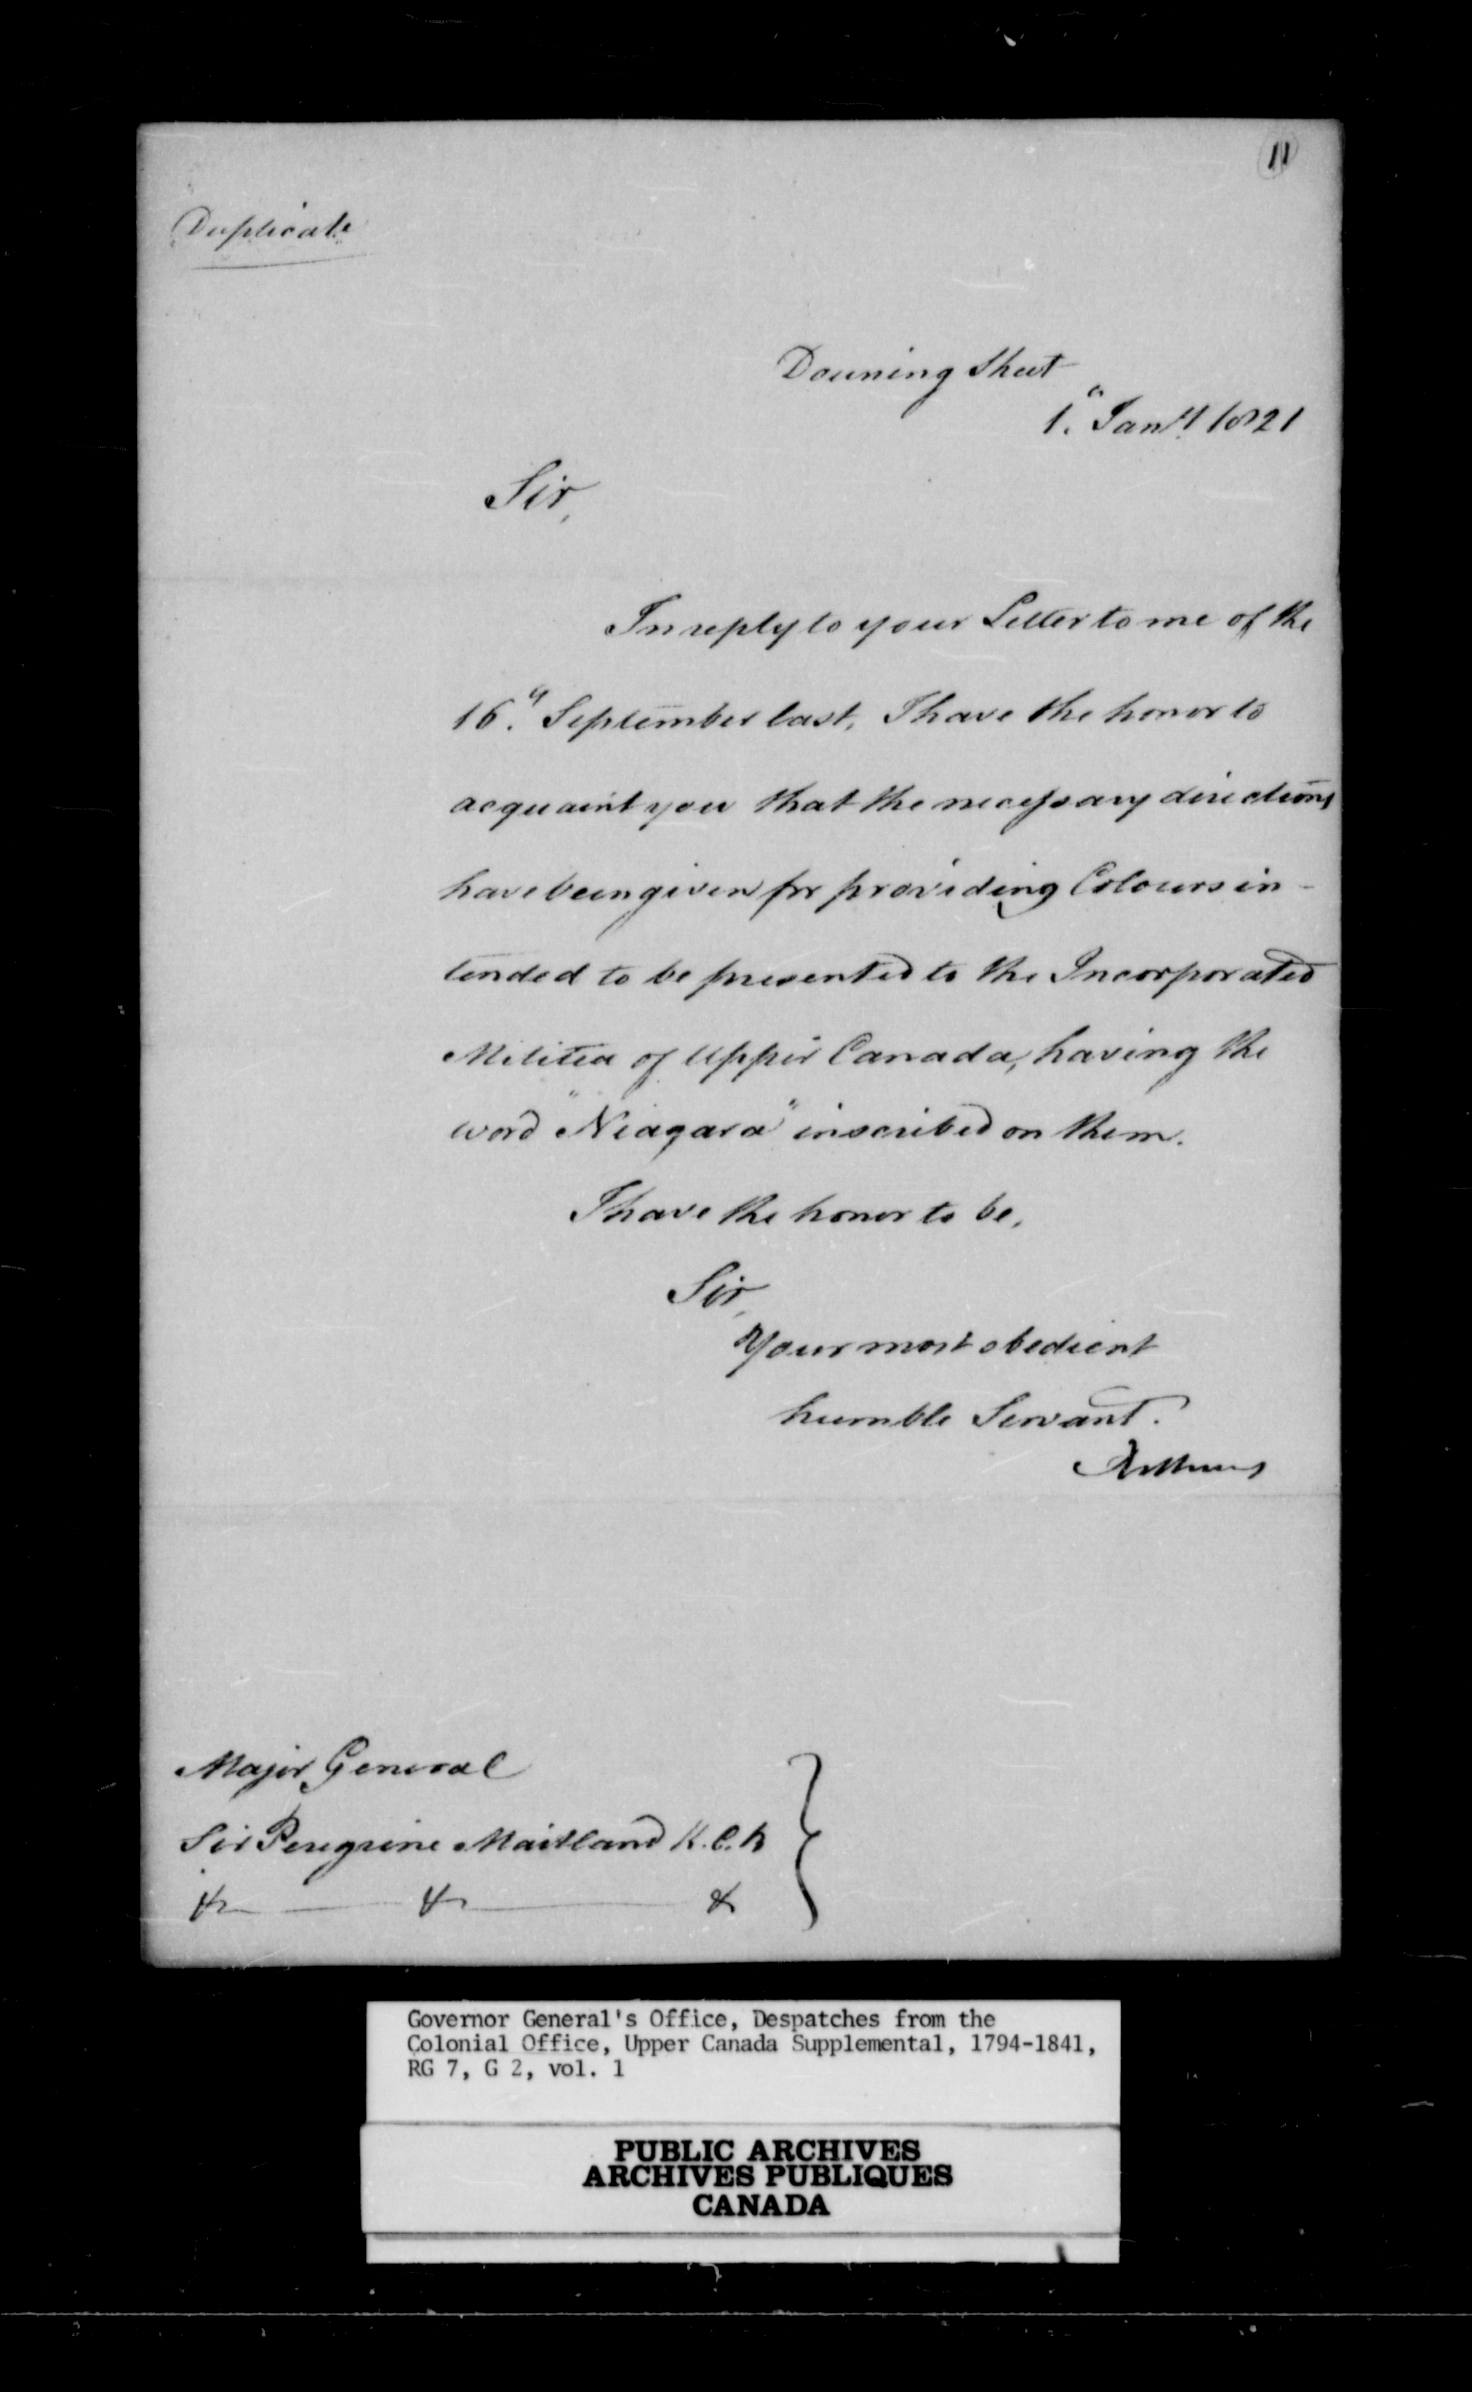 11
Duplicate
Downing Street
1st Jany 1821
Sir,
In reply to your Letter to me of the
16th September last, I have the honor to
acquaint you that the necessary directions
have been given for providing Colours in-
tended to be presented to the Incorporated
Militia of Upper Canada, having the
word "Niagara" inscribed on them.
I have the honor to be,
Sir,
Your most obedient
humble Servant.
Major General
Sir Peregrine Maitland K.C.B
&c &c &c
Governor General's Office, Despatches from the
Colonial Office, Upper Canada Supplemental, 1794-1841,
RG 7, G 2, vol. 1
PUBLIC ARCHIVES
ARCHIVES PUBLIQUES
CANADA